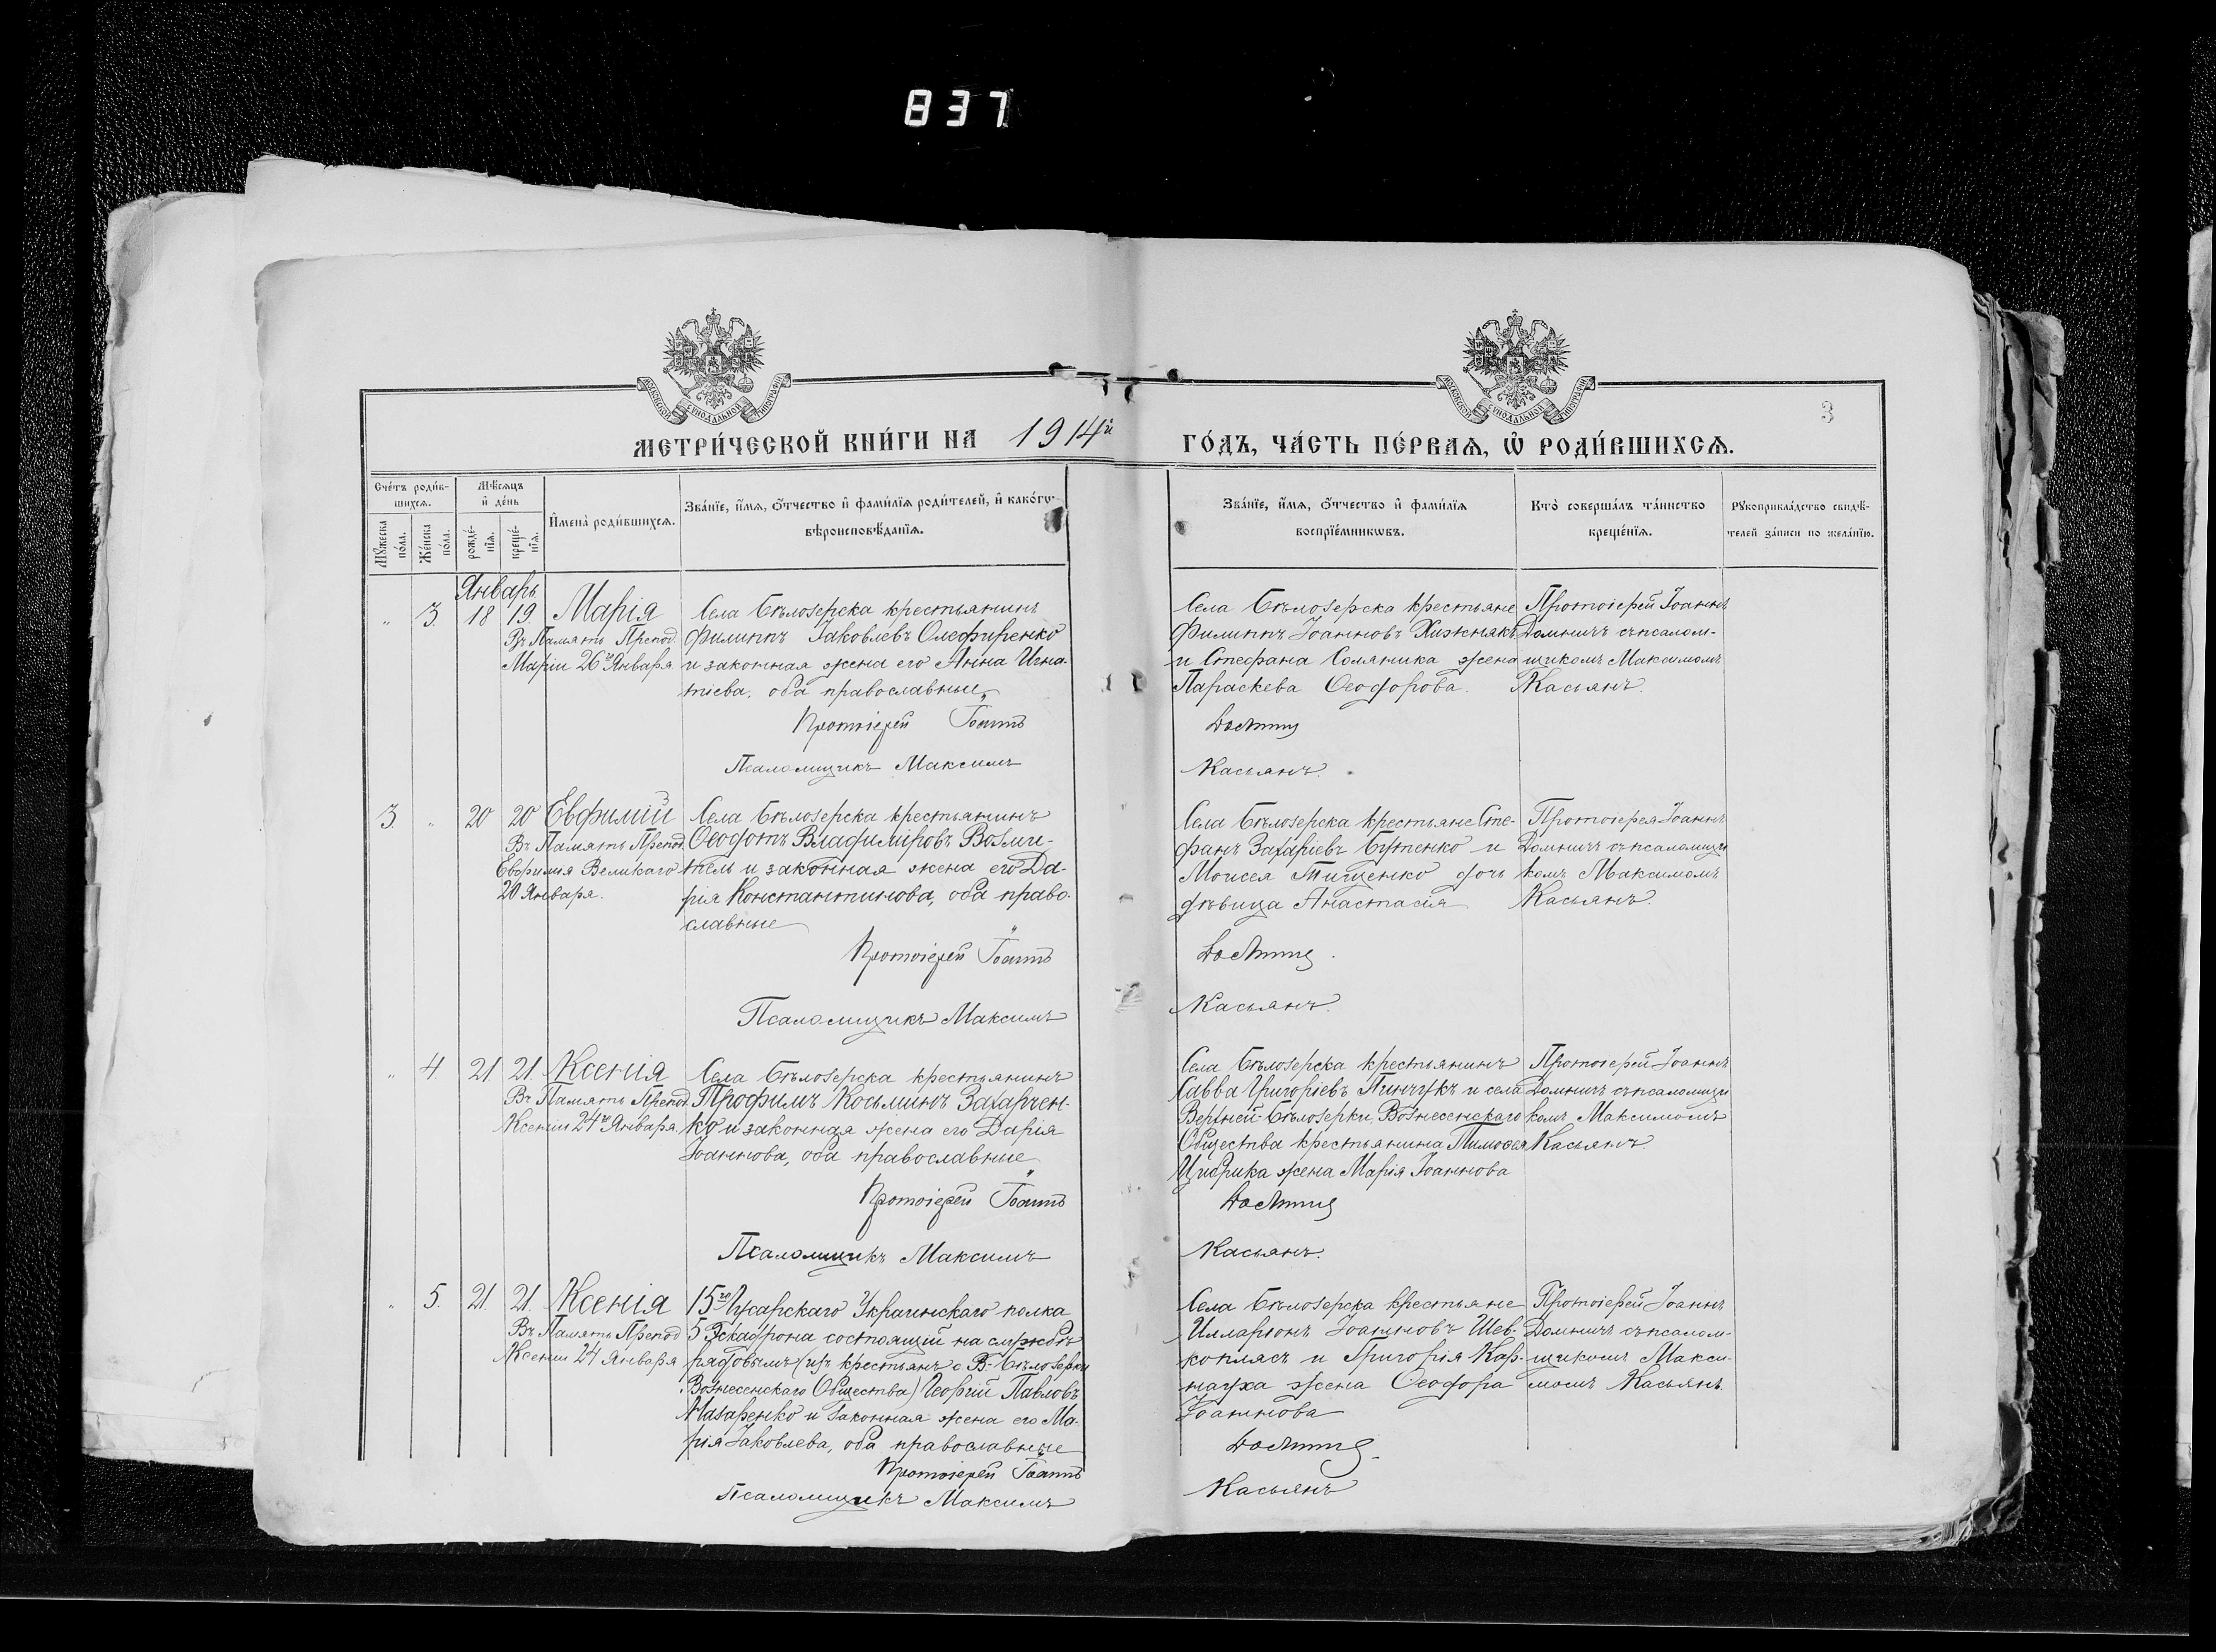 837
МОСКОВСКОЙ СУНОДАЛЬНОЙ ТИПОГРАФІИ
МОСКОВСКОЙ СУНОДАЛЬНОЙ ТИПОГРАФІИ
3
МЕТРИ́ЧЕСКОЙ КНИ́ГИ НА 1914й ГО́ДЪ, ЧА́СТЬ ПЕ́РВАѦ, Ѡ҆ РОДИ́ВШИХСѦ.
Сче́тъ роди́в-
шихсѧ.
Мꙋ́жеска по́ла.
Же́нска по́ла.
Мѣ́сѧцъ
и҆ де́нь
рожде́-
нїѧ.
креще́-
нїѧ.
И҆мена̀ роди́вшихсѧ.
Зва́нїе, и҆́мѧ, ѻ҆́тчество и҆ фами́лїѧ роди́телей, и҆ како́гѡ
вѣроисповѣ́данїѧ.
Зва́нїе, и҆́мѧ, ѻ҆́тчество и҆ фами́лїѧ
воспрїе́мникѡвъ.
Кто̀ соверша́лъ та́инство
креще́нїѧ.
Рꙋкоприкла́дство свидѣ́-
телей за́писи по жела́нїю.
Январь
" 3. 18 19. Марія
Въ Память Препод.
Маріи 26го Января
Села Бѣлозерска крестьянинъ
Филиппъ Іаковлевъ Олефиренко
и законная жена его Анна Игна-
тіева, оба православные
Протоіерей Іоаннъ
Псаломщикъ Максимъ
Села Бѣлозерска крестьяне
Филиппъ Іоанновъ Хижнякъ
и Стефана Соляника жена
Параскева Ѳеодорова.
Домничъ
Касьянъ.
Протоіерей Іоаннъ
Домничъ съ псалом-
щикомъ Максимомъ
Касьянъ.
3. " 20 20 Евфимій
Въ Память Препод.
Евфимія Великаго
20 Января.
Села Бѣлозерска крестьянинъ
Ѳеодотъ Владиміровъ Возми-
тель и законная жена его Да-
рія Константинова, оба право-
славные
Протоіерей Іоаннъ
Псаломщикъ Максимъ
Села Бѣлозерска крестьяне Сте-
фанъ Захаріевъ Бутенко и
Моисея Тищенко дочь
дѣвица Анастасія
Домничъ.
Касьянъ.
Протоіерей Іоаннъ
Домничъ съ псаломщи
комъ Максимомъ
Касьянъ.
" 4. 21. 21. Ксенія
Въ Память Препод.
Ксеніи 24го Января.
Села Бѣлозерска крестьянинъ
Трофимъ Косьминъ Захарчен-
ко и законная жена его Дарія
Іоаннова, оба православные
Протоіерей Іоаннъ
Псаломщикъ Максимъ
Села Бѣлозерска крестьянинъ
Савва Григоріевъ Пинчукъ и села
Верхней-Бѣлозерки, Вознесенскаго
Общества крестьянина Тимоѳея
жена Марія Іоаннова
Домничъ
Касьянъ.
Протоіерей Іоаннъ
Домничъ съ псаломщи
комъ Максимомъ
Касьянъ.
" 5. 21. 21. Ксенія
Въ Память Препод
Ксеніи 24 Января
15го Гусарскаго Украинскаго полка
5 Эскадрона состоящій на службѣ
рядовымъ (изъ крестьянъ с. В-Бѣлозерки
Вознесенскаго Общества) Георгій Павловъ
Назаренко и законная жена его Ма-
рія Іаковлева, оба православные
Протоіерей Іоаннъ
Псаломщикъ Максимъ
Села Бѣлозерска крестьяне
Илларіонъ Іоанновъ Шев-
коплясъ и Григорія Кар-
науха жена Ѳеодора
Іоаннова
Домничъ
Касьянъ
Протоіерей Іоаннъ
Домничъ съ псалом-
щикомъ Макси-
момъ Касьянъ.